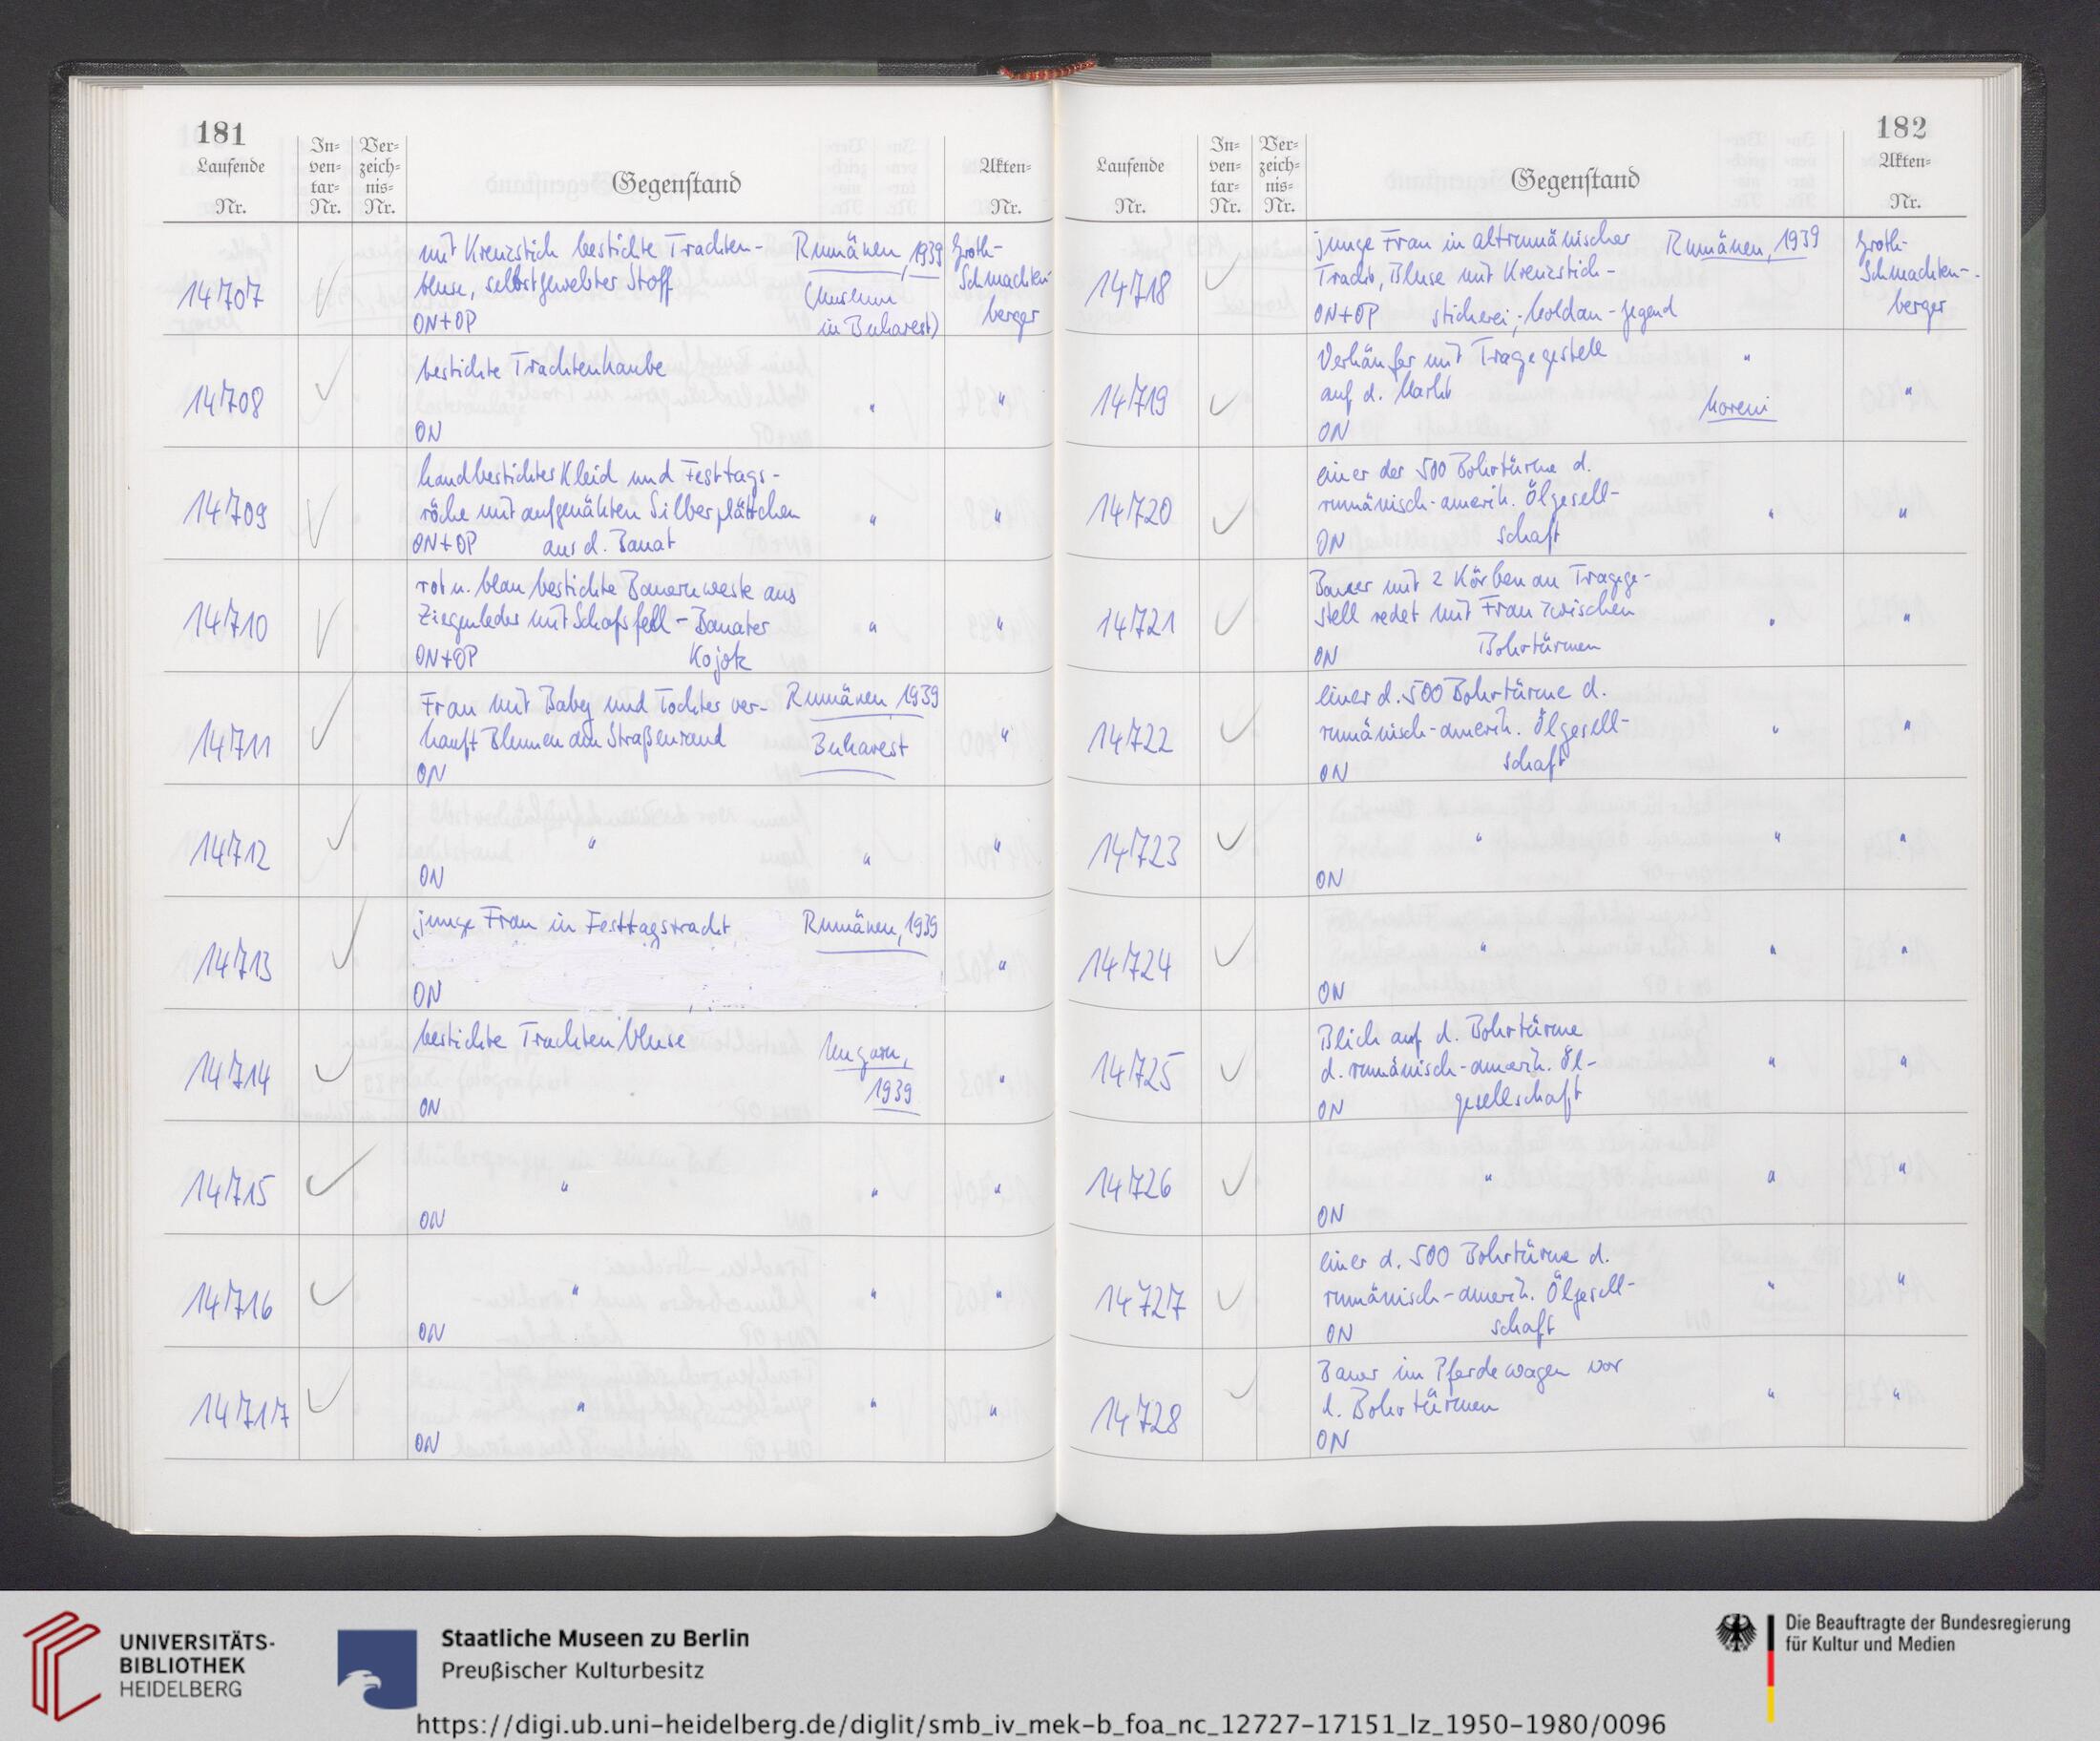 181
Laufende Nr.
In-ven-tar-Nr.
Ver-zeich-nis-Nr.
Gegenstand
Akten-Nr.
14707
mit Kreuzstich bestickte Trachten-
bluse, selbstgewebter Stoff
ON+OP
Rumänien, 1939
(Museum
in Bukarest)
Groth-
Schmachten-
berger
14708
bestickte Trachtenhaube
ON
"
"
14709
handbesticktes Kleid und Festtags-
röcke mit aufgenähten Silberplättchen
ON+OP aus d. Banat
"
"
14710
rot u. blau bestickte Bauernweste aus
Ziegenleder mit Schafsfell - Banater
ON+OP Kojok
"
"
14711
Frau mit Baby und Tochter ver-
kauft Blumen am Straßenrand
ON
Rumänien, 1939
Bukarest
"
14712
"
ON
"
"
14713
junge Frau in Festtagstracht
ON
Rumänien, 1939
"
14714
bestickte Trachtenbluse
ON
Ungarn,
1939
"
14715
"
ON
"
"
14716
"
ON
"
"
14717
"
ON
"
"
182
Laufende Nr.
In-ven-tar-Nr.
Ver-zeich-nis-Nr.
Gegenstand
Akten-Nr.
14718
junge Frau in altrumänischer
Tracht, Bluse mit Kreuzstich-
ON+OP stickerei; Moldau-Gegend
Rumänien, 1939
Groth-
Schmachten-
berger
14719
Verkäufer mit Tragegestell
auf d. Markt
ON
"
Moreni
"
14720
einer der 500 Bohrtürme d.
rumänisch-amerik. Ölgesell-
ON schaft
"
"
14721
Bauer mit 2 Körben an Tragege-
stell redet mit Frau zwischen
ON Bohrtürmen
"
"
14722
einer d. 500 Bohrtürme d.
rumänisch-amerik. Ölgesell-
ON schaft
"
"
14723
"
ON
"
"
14724
"
ON
"
"
14725
Blick auf d. Bohrtürme
d. rumänisch-amerik. Öl-
ON gesellschaft
"
"
14726
"
ON
"
"
14727
einer d. 500 Bohrtürme d.
rumänisch-amerik. Ölgesell-
ON schaft
"
"
14728
Bauer im Pferdewagen vor
d. Bohrtürmen
ON
"
"
UNIVERSITÄTS-
BIBLIOTHEK
HEIDELBERG
Staatliche Museen zu Berlin
Preußischer Kulturbesitz
Die Beauftragte der Bundesregierung
für Kultur und Medien
https://digi.ub.uni-heidelberg.de/diglit/smb_iv_mek-b_foa_nc_12727-17151_lz_1950-1980/0096